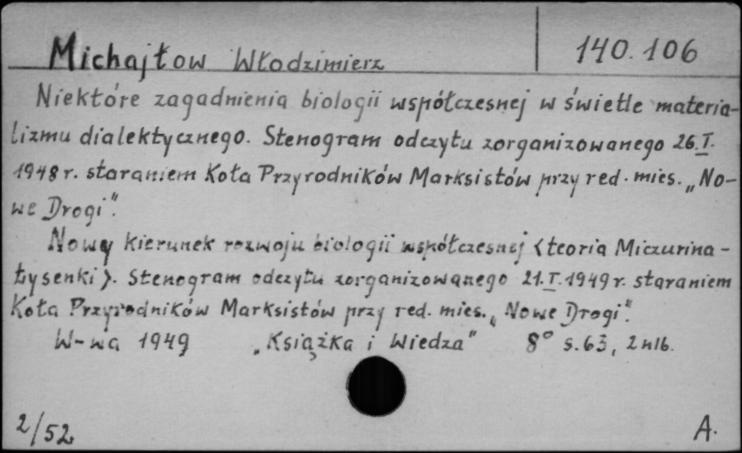 Michajłow Włodzimierz 140.106
Niektóre zagadnienia biologii współczesnej w świetle materia-
lizmu dialektycznego. Stenogram odczytu zorganizowanego 26.I.
1948 r. staraniem Koła Przyrodników Marksistów przy red. mies. „No-
we Drogi".
Nowy kierunek rozwoju biologii współczesnej <teoria Miczurina-
Łysenki>. Stenogram odczytu zorganizowanego 21.I.1949 r. staraniem
Koła Przyrodników Marksistów przy red. mies. „Nowe Drogi".
W-wa 1949 „Książka i Wiedza" 8° s.63, 2 nlb.
2/52 A.